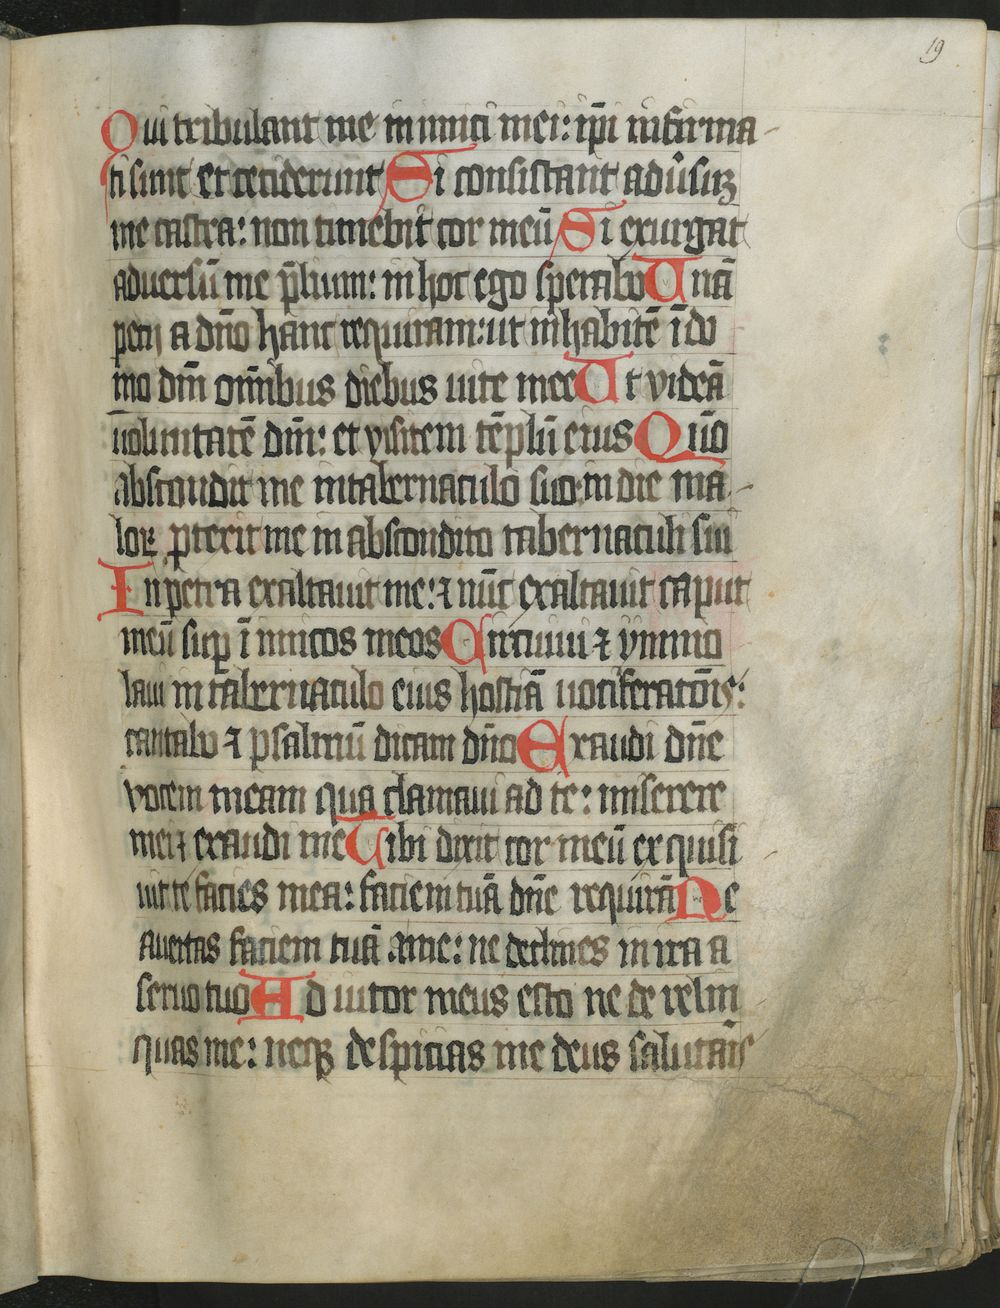 19
Qui tribulant me inimici mei: ip̄i infirma-
ti sunt et ceciderunt Si consistant adūsuꝫ
me castra: non timebit cor meū Si exurgat
adversū me p̄lium: in hoc ego sperabo Unā
petij a dn̄o hanc requiram: ut inhabitē ī do
mo dn̄i om̄ibus diebus uite mee Ut videā
uoluntatē dn̄i: et visitem tēplū eius Qn̄o
abscondit me in tabernaculo suo: in die ma-
loꝝ ꝓtexit me in abscondito tabernaculi sui
In petra exaltauit me: ⁊ nūc exaltauit caput
meū suꝑ īimicos meos Circuiui ⁊ ymmo
laui in tabernaculo eius hostiā uociferatōis:
cantabo ⁊ psalmū dicam dn̄o Exaudi dn̄e
vocem meam qua clamaui ad te: miserere
mei ⁊ exaudi me Tibi dixit cor meū exquisi
uit te facies mea: faciem tuā dn̄e requirā Ne
auertas faciem tuā a me: ne declines in ira a
seruo tuo Adiutor meus esto ne derelin
quas me: neqꝫ despicias me deus salutaīs